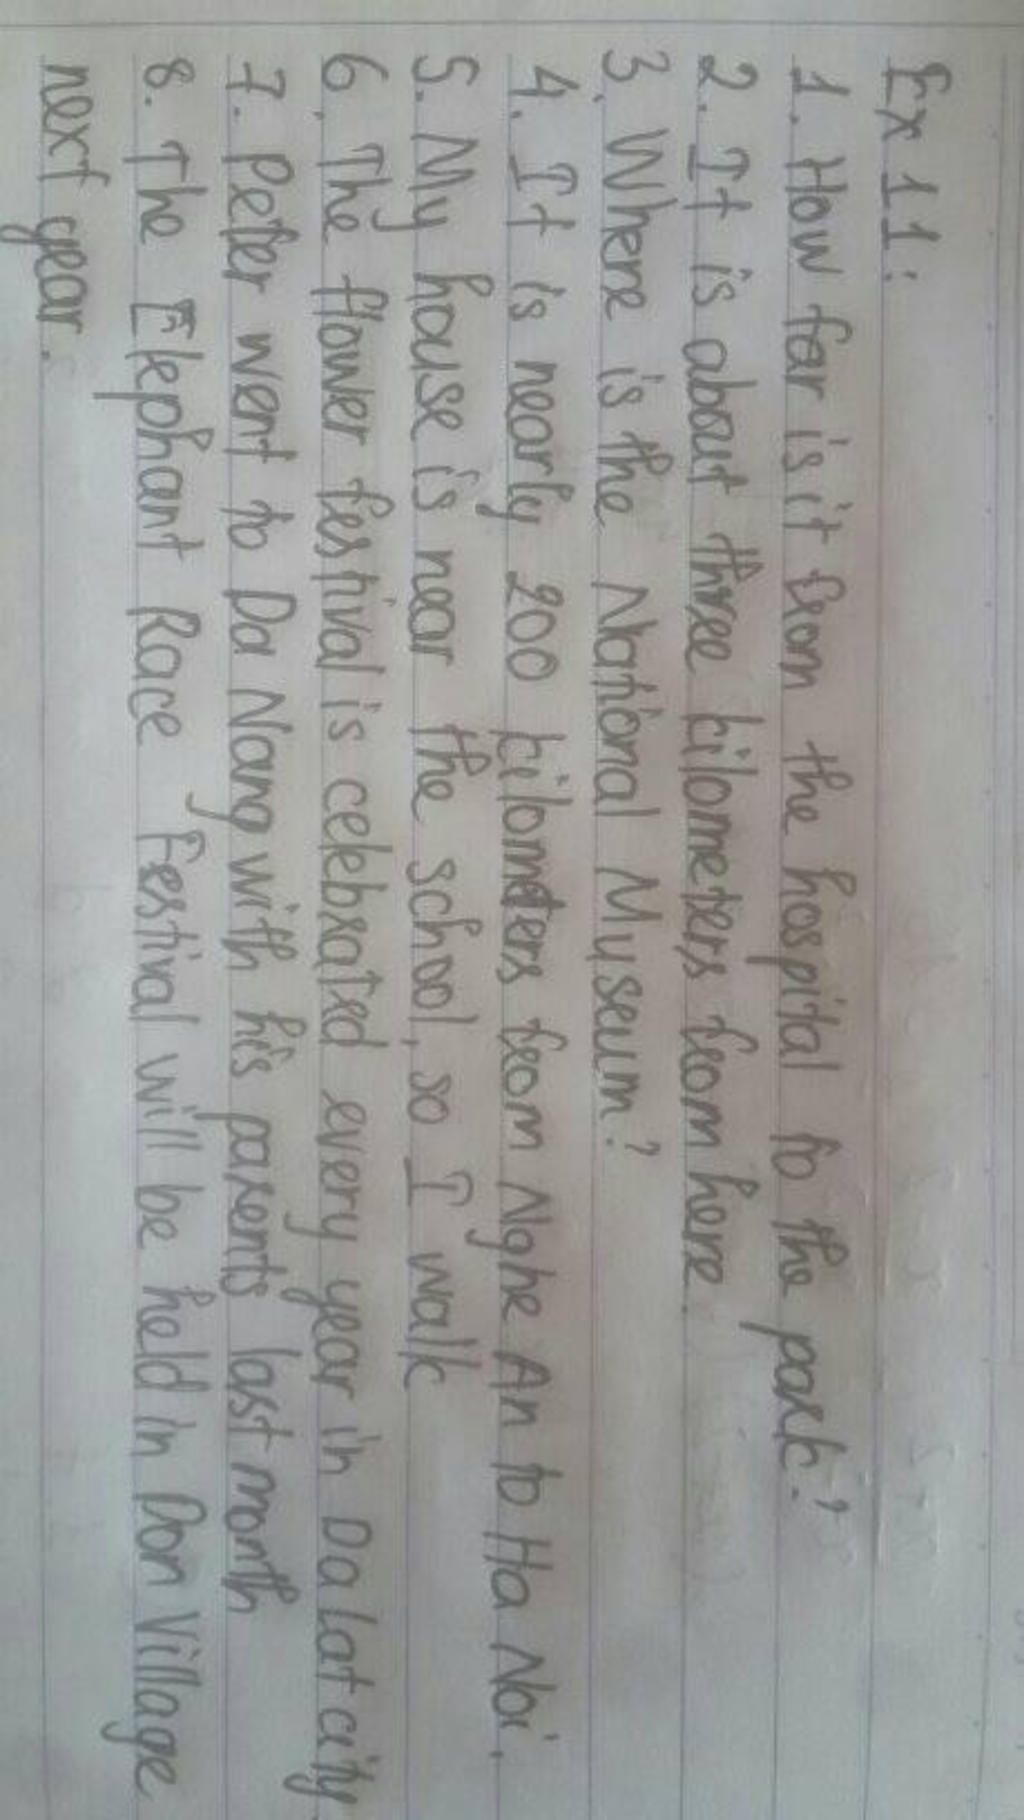 Ex 11:
1. How far is it from the hospital to the park?
2. It is about three kilometers from here.
3. Where is the National Museum?
4. It is nearly 200 kilometers from Nghe An to Ha Noi.
5. My house is near the school, so I walk
6. The flower festival is celebrated every year in Da Lat city.
7. Peter went to Da Nang with his parents last month
8. The Elephant Race Festival will be held in Don Village
next year.